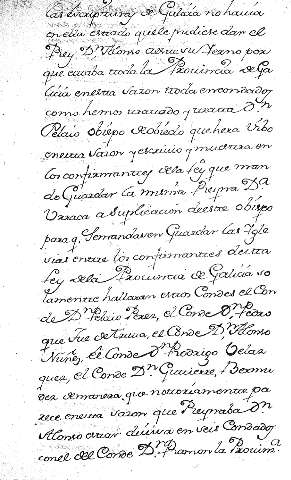 las escripturas de Galicia no havia
en ella estado que le pudiese dar el
Rey Dn. Alonso a esta su Yerno por
que estaba toda la Provincia de Ga
licia en esta sazon toda en condados
como hemos tratado y trata Dn
Pelaio obispo de obiedo que hera vibo
en esta sazon y escrivio y muestra en
los confirmantes de la Ley que man
do Guardar la misma Reyna Da
Urraca a suplicacion de este obispo
para q. se mandasen Guardar las Igle
sias entre los confirmantes de esta
Ley de la Provincia de Galicia so
lamente hallaran estos Condes el Con
de Dn. Pelaio Perez, el Conde Dn. Pedro
que fue de Trava, el Conde Dn. Alonso
Nuñez, el Conde Dn. Rodrigo Velaz
quez, el Conde Dn. Gutierre, Bermu
dez de manera que notoriamente pa
rece en esta sazon que Reynaba Dn
Alonso estar divisa en seis Condados
con el del Conde Dn. Ramon la Provin.a